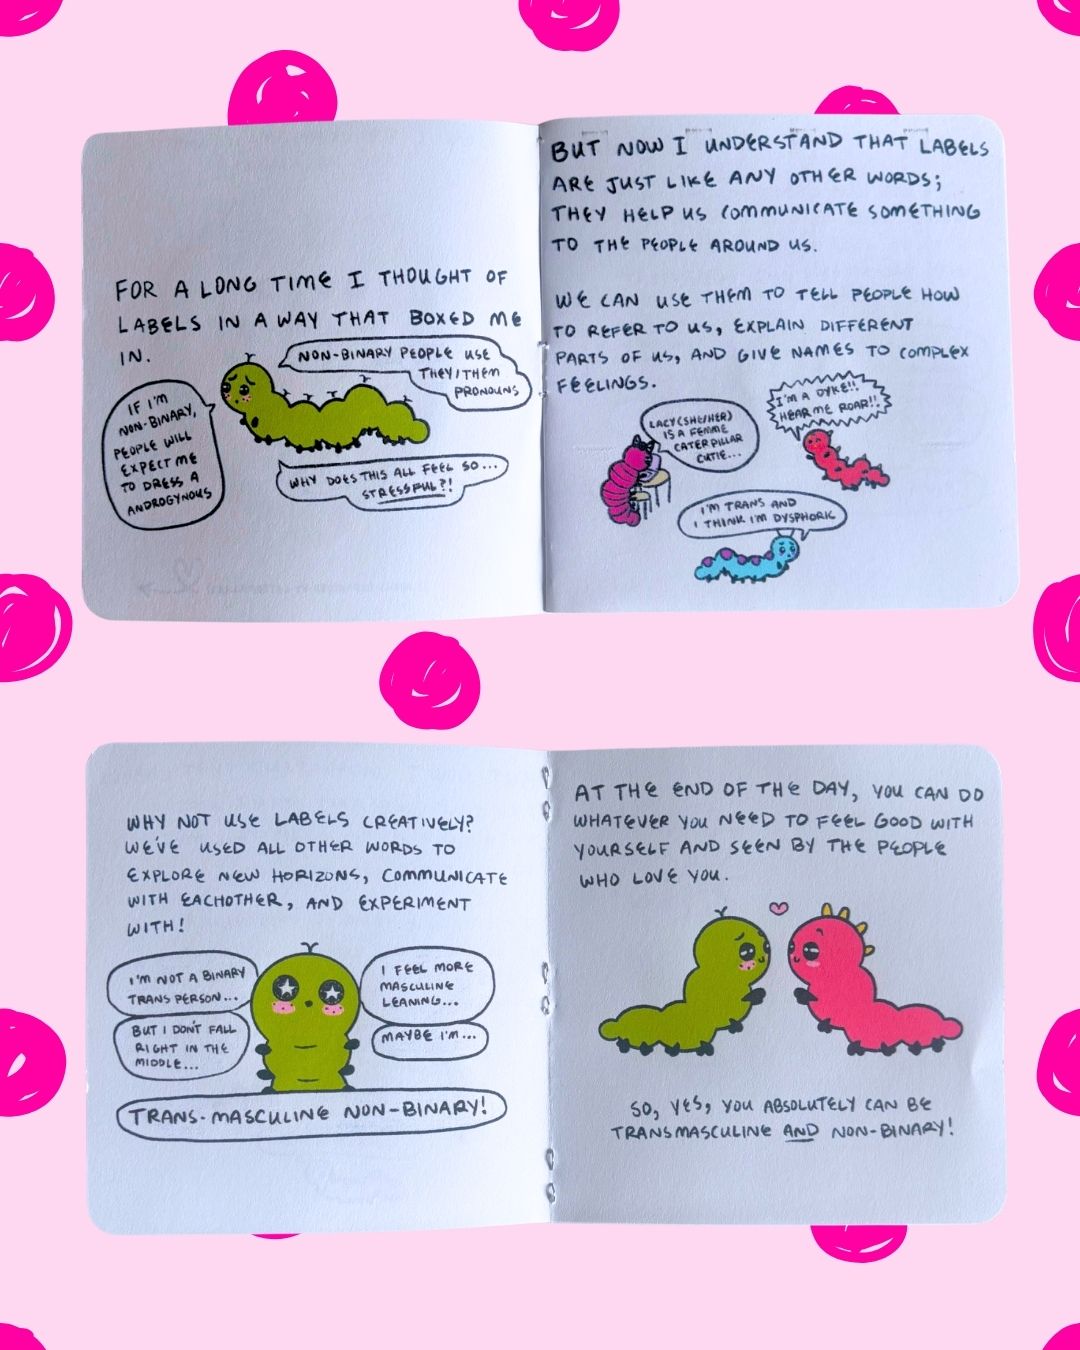 FOR A LONG TIME I THOUGHT OF
LABELS IN A WAY THAT BOXED ME
IN.
NON-BINARY PEOPLE USE
THEY/THEM
PRONOUNS
IF I'M
NON-BINARY,
PEOPLE WILL
EXPECT ME
TO DRESS A
ANDROGYNOUS
WHY DOES THIS ALL FEEL SO...
STRESSFUL?!
BUT NOW I UNDERSTAND THAT LABELS
ARE JUST LIKE ANY OTHER WORDS;
THEY HELP US COMMUNICATE SOMETHING
TO THE PEOPLE AROUND US.
WE CAN USE THEM TO TELL PEOPLE HOW
TO REFER TO US, EXPLAIN DIFFERENT
PARTS OF US, AND GIVE NAMES TO COMPLEX
FEELINGS.
LACY (SHE/HER)
IS A FEMME
CATERPILLAR
CUTIE...
I'M A DYKE!!
HEAR ME ROAR!!
I'M TRANS AND
I THINK I'M DYSPHORIC
WHY NOT USE LABELS CREATIVELY?
WE'VE USED ALL OTHER WORDS TO
EXPLORE NEW HORIZONS, COMMUNICATE
WITH EACHOTHER, AND EXPERIMENT
WITH!
I'M NOT A BINARY
TRANS PERSON...
BUT I DON'T FALL
RIGHT IN THE
MIDDLE...
I FEEL MORE
MASCULINE
LEANING...
MAYBE I'M...
TRANS-MASCULINE NON-BINARY!
AT THE END OF THE DAY, YOU CAN DO
WHATEVER YOU NEED TO FEEL GOOD WITH
YOURSELF AND SEEN BY THE PEOPLE
WHO LOVE YOU.
SO, YES, YOU ABSOLUTELY CAN BE
TRANSMASCULINE AND NON-BINARY!